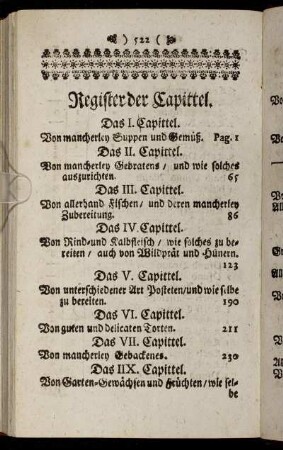 ) 522 (
Register der Capittel.
Das I. Capittel.
Von mancherley Suppen und Gemüß. Pag. 1
Das II. Capittel.
Von mancherley Gebratens / und wie solches
auszurichten. 65
Das III. Capittel.
Von allerhand Fischen / und deren mancherley
Zubereitung. 86
Das IV. Capittel.
Von Rind-und Kalbfleisch / wie solches zu be-
reiten / auch von Wildprät und Hünern.
123
Das V. Capittel.
Von unterschiedener Art Posteten / und wie selbe
zu bereiten. 190
Das VI. Capittel.
Von guten und delicaten Torten. 211
Das VII. Capittel.
Von mancherley Gebackenes. 230
Das IIX. Capittel.
Von Garten-Gewächsen und Früchten / wie sel-
be